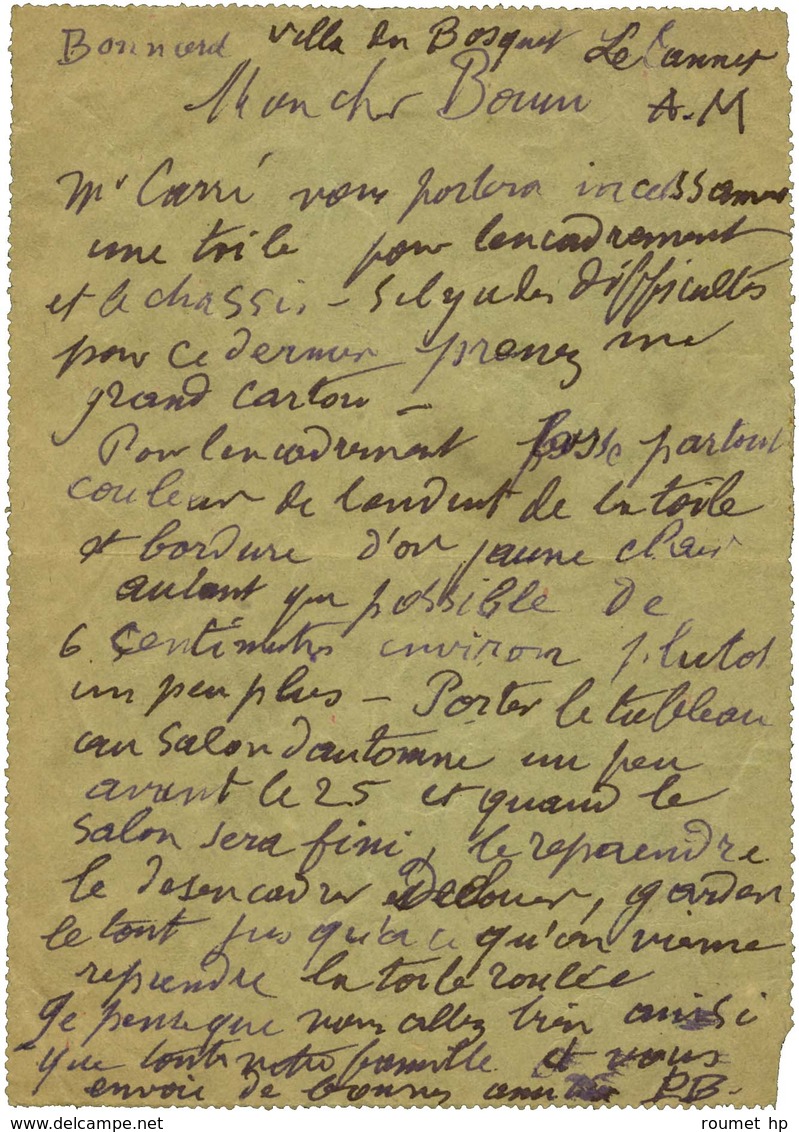 Bonnard villa du Bosquet Le Cannet
Mon cher Bouin A.M
Mr Carré vous portera incessament
une toile pour lencadrement
et le chassis - Sil y a des difficultés
pour ce dernier prenez un
grand carton -
Pour lencadrement passe partout
couleur de lenduit de la toile
et bordure d'or jaune clair
autant que possible de
6 centimetres environ plutot
un peu plus - Porter le tableau
au Salon dautomne un peu
avant le 25 et quand le
Salon sera fini, le reprendre
le desencadrer Declouer, garder
le tout jusqu'a ce qu'on vienne
reprendre la toile roulée
Je pense que vous allez bien ainsi
que toute votre famille et vous
envoie de bonnes amitiés P.B.
roumet hp